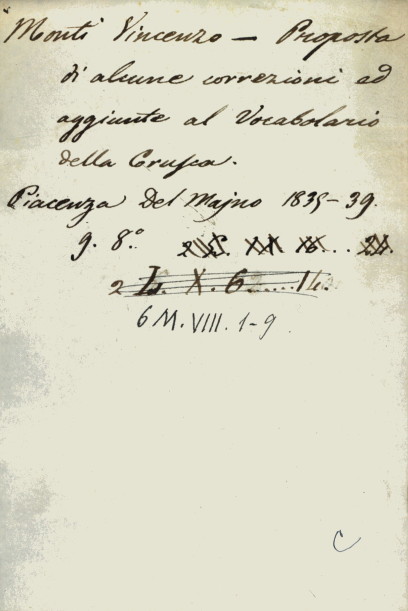 Monti Vincenzo — Proposta
di alcune correzioni ed
aggiunte al Vocabolario
della Crusca.
Piacenza Del Majno 1835-39.
9. 8.°
2 L. X. 6.....14.
6 M. VIII. 1-9.
C